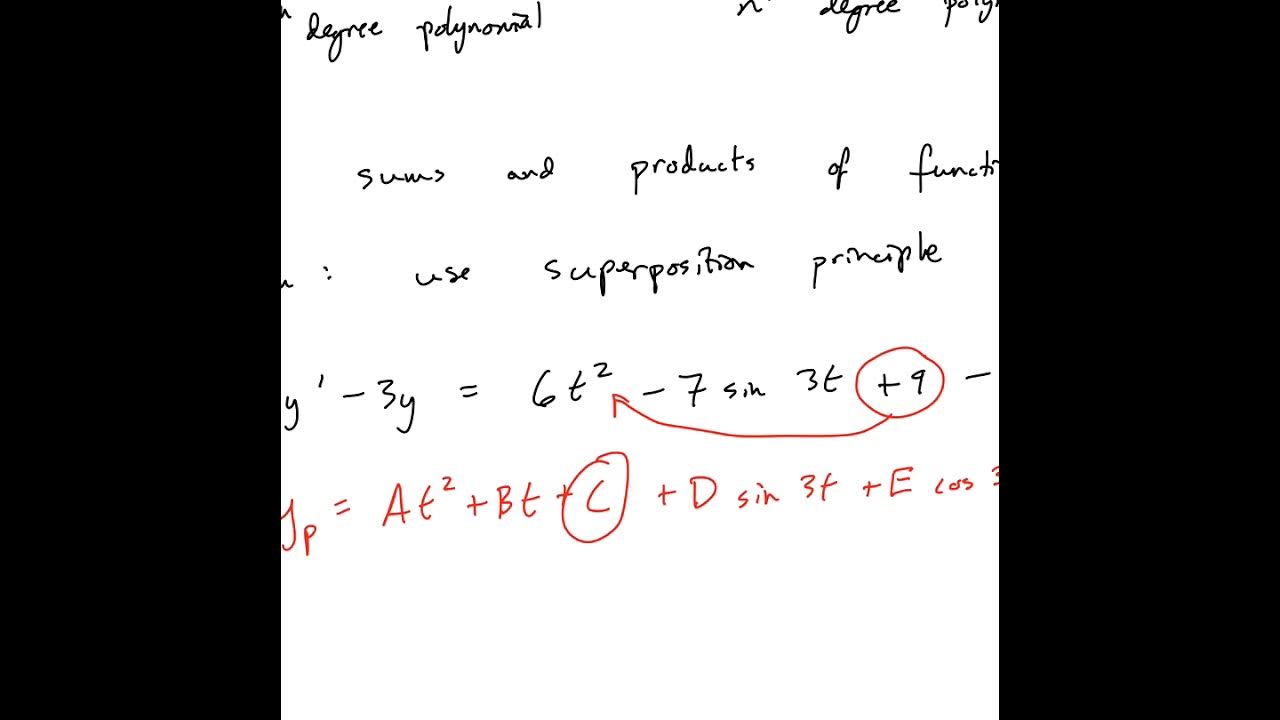 degree polynomial degree
sums and products of
: use superposition principle
y' - 3y = 6t² - 7 sin 3t + 9 -
yₚ = At² + Bt + C + D sin 3t + E cos